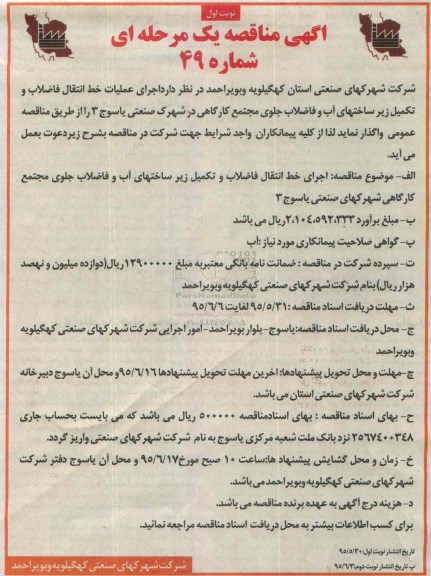 نوبت اول
آگهی مناقصه یک مرحله ای
شماره ۴۹
شرکت شهرکهای صنعتی استان کهگیلویه وبویراحمد در نظر دارداجرای عملیات خط انتقال فاضلاب و
تکمیل زیر ساختهای آب و فاضلاب جلوی مجتمع کارگاهی در شهرک صنعتی یاسوج ۳ را از طریق مناقصه
عمومی واگذار نماید لذا از کلیه پیمانکاران واجد شرایط جهت شرکت در مناقصه بشرح زیردعوت بعمل
می آید.
الف- موضوع مناقصه: اجرای خط انتقال فاضلاب و تکمیل زیر ساختهای آب و فاضلاب جلوی مجتمع
کارگاهی شهرکهای صنعتی یاسوج ۳
ب- مبلغ برآورد ۲،۱۰۴،۵۹۲،۳۳۳ریال می باشد
پ- گواهی صلاحیت پیمانکاری مورد نیاز :آب
ت- سپرده شرکت در مناقصه : ضمانت نامه بانکی معتبربه مبلغ ۱۲۹۰۰۰۰۰ریال(دوازده میلیون و نهصد
هزار ریال) بنام شرکت شهرکهای صنعتی کهگیلویه وبویراحمد
ث- مهلت دریافت اسناد مناقصه : ۹۵/۵/۳۱ لغایت ۹۵/۶/۶
ج- محل دریافت اسناد مناقصه:یاسوج-بلوار بویراحمد- امور اجرایی شرکت شهرکهای صنعتی کهگیلویه
وبویراحمد
چ-مهلت و محل تحویل پیشنهادها: آخرین مهلت تحویل پیشنهادها ۹۵/۶/۱۶و محل آن یاسوج دبیرخانه
شرکت شهرکهای صنعتی استان می باشد.
ح- بهای اسناد مناقصه : بهای اسنادمناقصه ۵۰۰۰۰۰ ریال می باشد که می بایست بحساب جاری
۲۵۶۷۴۰۰۳۴۸ نزد بانک ملت شعبه مرکزی یاسوج به نام شرکت شهرکهای صنعتی واریز گردد.
خ- زمان و محل گشایش پیشنهاد ها:ساعت ۱۰ صبح مورخ۹۵/۶/۱۷ و محل آن یاسوج دفتر شرکت
شهرکهای صنعتی کهگیلویه وبویراحمدمی باشد.
د- هزینه درج آگهی به عهده برنده مناقصه می باشد.
برای کسب اطلاعات بیشتر به محل دریافت اسناد مناقصه مراجعه نمائید.
تاریخ انتشار نوبت اول:۹۵/۵/۳۰
پ تاریخ انتشار نوبت دوم:۹۵/۶/۳
شرکت شهرکهای صنعتی کهگیلویه وبویراحمد
ParsNamadData